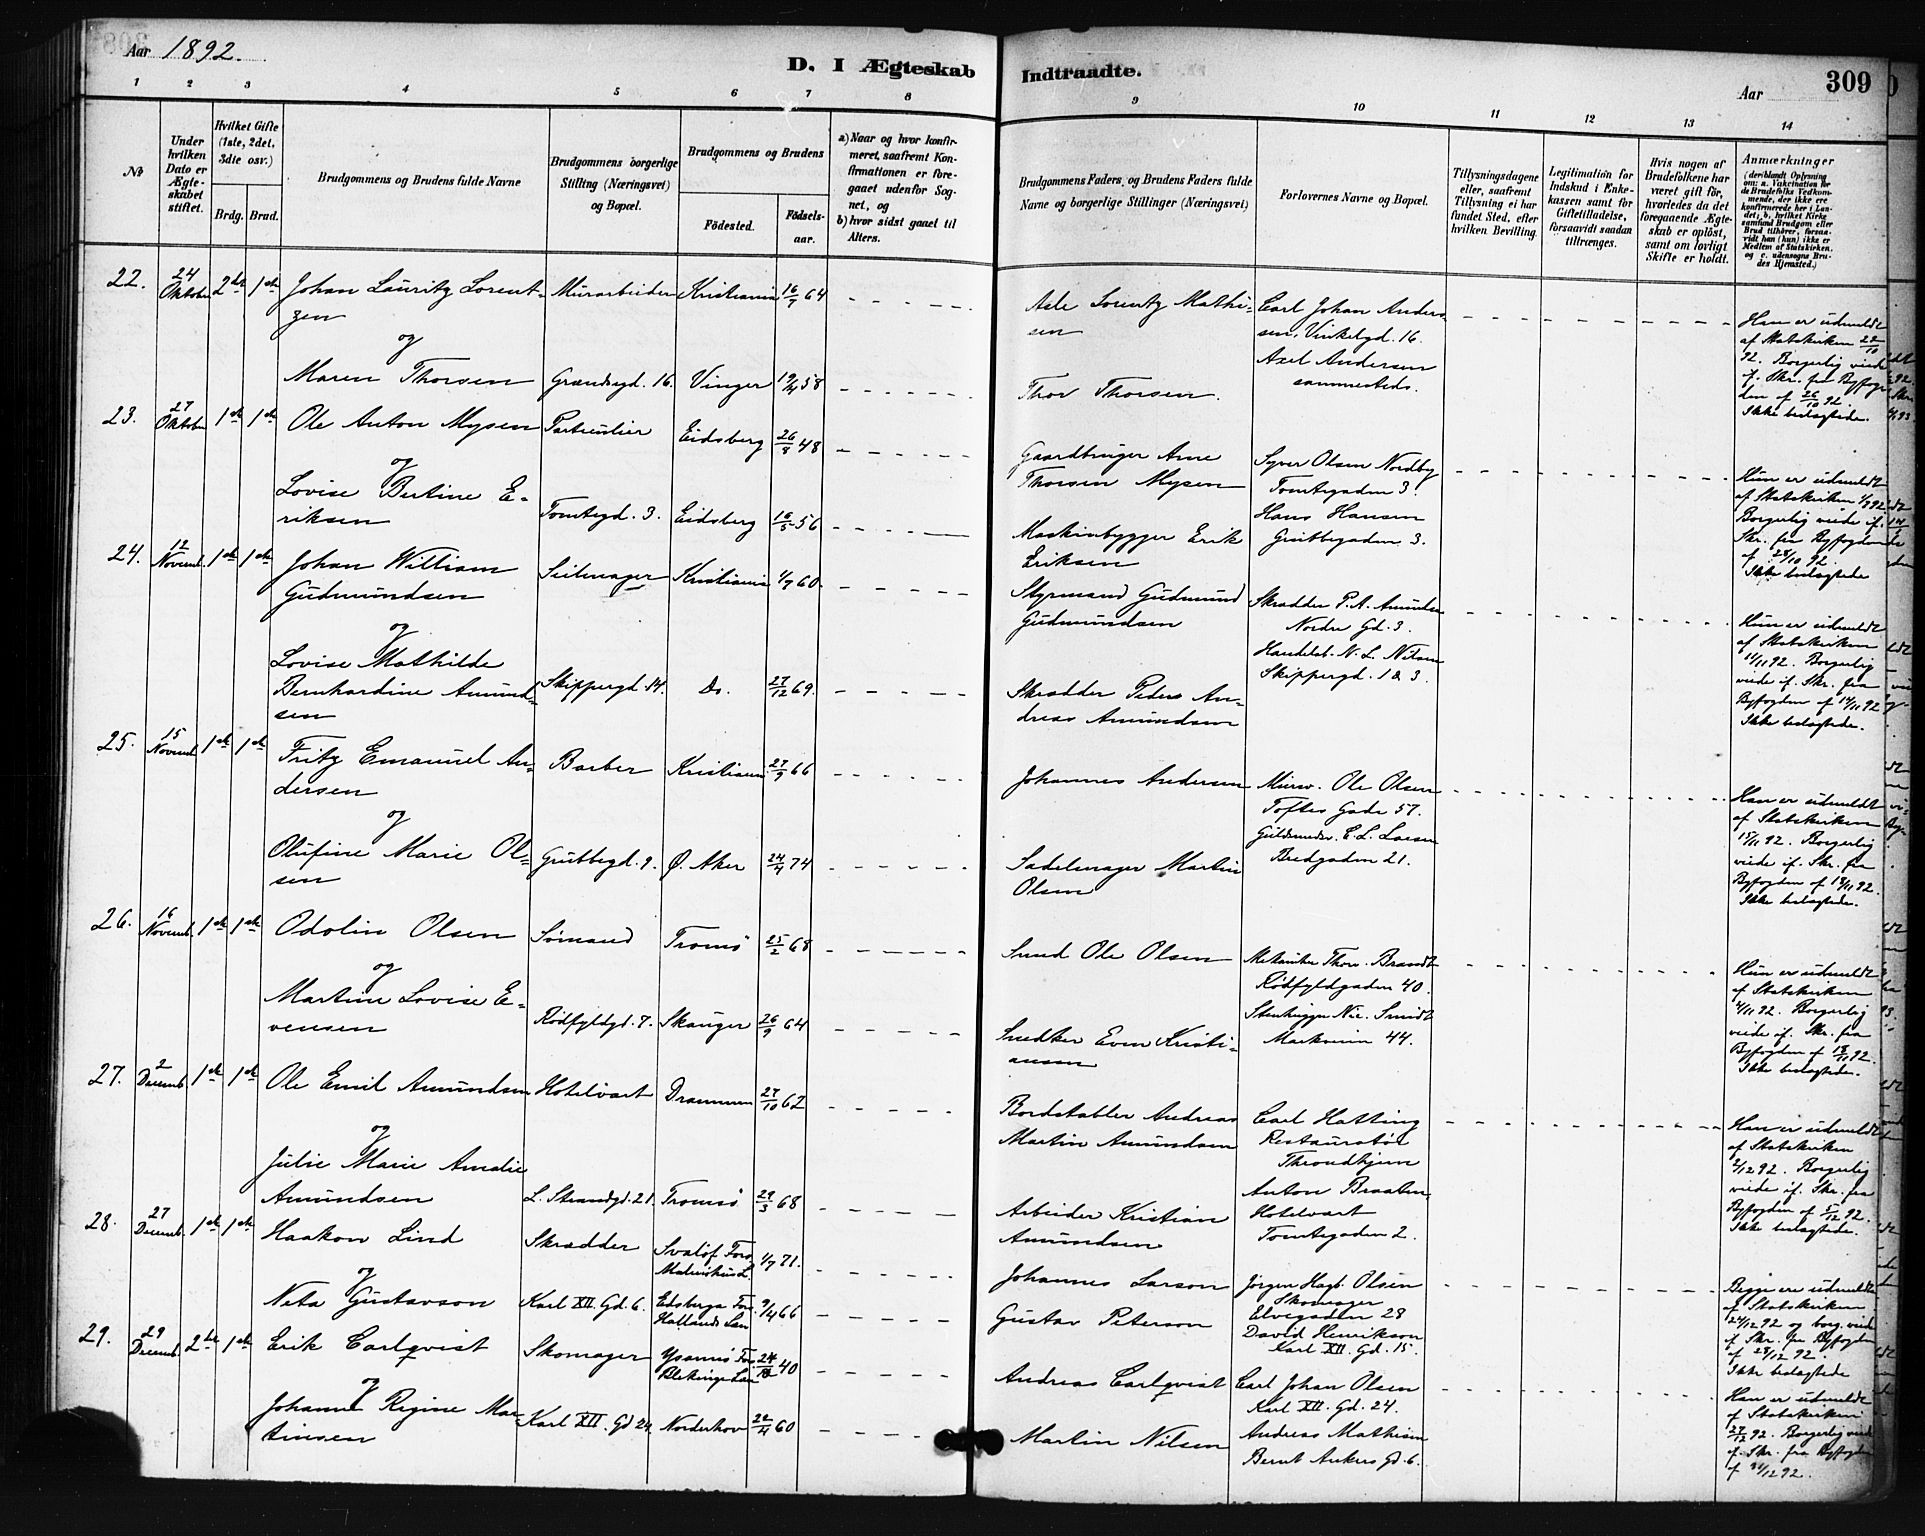 Aar 1892.
D. I Ægteskab Indtraadte.
Aar
309
1 2 3 4 5 6 7 8 9 10 11 12 13 14
No
Under hvilken Dato er Ægteskabet stiftet.
Hvilket Gifte (1ste, 2det, 3die osv.)
Brdg. Brud.
Brudgommens og Brudens fulde Navne
Brudgommens borgerlige Stilling (Næringsvei) og Bopæl.
Brudgommens og Brudens
Fødested.
Fødselsaar.
a) Naar og hvor konfirmeret, saafremt Konfirmationen er foregaaet udenfor Sognet, og
b) hvor sidst gaaet til Alters.
Brudgommens Faders og Brudens Faders fulde Navne og borgerlige Stillinger (Næringsvei)
Forlovernes Navne og Bopæl.
Tillysningsdagene eller, saafremt Tillysning ei har fundet Sted, efter hvilken Bevilling.
Legitimation for Indskud i Enkekassen samt for Giftetilladelse, forsaavidt saadan tiltrænges.
Hvis nogen af Brudefolkene har været gift før, hvorledes da det foregaaende Ægteskab er opløst, samt om lovligt Skifte er holdt.
Anmærkninger
(deriblandt Oplysning om: a. Vakcination for de Brudefolks Vedkommende, der ikke ere konfirmerede her i Landet; b. hvilket Kirkesamfund Brudgom eller Brud tilhører, forsaavidt han (hun) ikke er Medlem af Statskirken, og c. udensogns Brudes Hjemsted.)
22. 24 Oktober 2det 1ste
Johan Lauritz Lorentzen
Murarbeider Kristiania 16/7 64
og
Maren Thorsen
Grændsegd. 16. Vinger 19/4 58
Asle Lorentz Mathisen
Thor Thorsen.
Carl Johan Andersen, Vinkelgd. 16.
Axel Andersen
sammesteds.
Han er udmeldt
af Statskirken 22/10
92. Borgerlig viede
if. Skr. fra Byfogden
af 26/10 92.
Ikke bedagtede.
23. 27 Oktober 1ste 1ste
Ole Anton Mysen
Partikulier Eidsberg 26/8 48
og
Lovise Bertine Eriksen
Tomtegd. 3. Eidsberg 16/5 56
Gaardbruger Arne
Thorsen Mysen
Maskinbygger Erik
Eriksen
Syver Olsen Nordby
Tomtegaden 3.
Hans Hansen
Grübbegaden 3.
Hun er udmeldt
af Statskirken 1/9 92
Borgerlig viede if.
Skr. fra Byfogden
af 28/10 92.
Ikke bedagtede
24. 12 Novemb. 1ste 1ste
Johan William
Gudmundsen
Seilmager Kristiania 1/7 60.
og
Lovise Mathilde
Bernhardine Amundsen
Skippergd. 14. Do. 27/12 69.
Styrmand Gudmund
Gudmundsen
Skrædder Peder Andreas Amundsen
Skrædder P. A. Amundsen
Nordre Gd. 3.
Handelsb. N. L. Nilsen
Skippergd. 1 & 3.
Hun er udmeldt
af Statskirken
11/11 92. Borgerlig
viede if. Skr. fra
Byfogden af 14/11 92
Ikke bedagtede.
25. 15 Novemb. 1ste 1ste
Fritz Emanuel Andersen
Barber Kristiania 27/9 66
og
Olufine Marie Olsen
Grübbegd. 9. Ø. Aker 24/4 74
Johannes Andersen
Sadelmager Martin
Olsen
Murer. Ole Olsen
Toftes Gade 57.
Guldsmedsv. C. L. Larsen
Bredgaden 21.
Han er udmeldt
af Statskirken
15/11 92. Borgerlig
viede if. Skr. fra
Byfogden af 18/11 92.
Ikke bedagtede.
26. 16 Novemb. 1ste 1ste
Odolin Olsen
Sømand Tromsø 25/2 68
og
Martine Lovise Evensen
Rødfyldgd. 7. Skauger 26/9 64
Smed Ole Olsen
Snedker Even Kristiansen
Mekaniker Thorv. Brandt
Rødfyldgaden 40.
Stenhugger Nic. Smidt
Markveien 44.
Hun er udmeldt
af Statskirken
4/11 92. Borgerlig
viede if. Skr. fra
Byfogden af 18/11 92.
Ikke bedagtede.
27. 2 Decemb. 1ste 1ste
Ole Emil Amundsen
Hotelvært Drammen 27/10 62
og
Julie Marie Amalie
Amundsen
L. Strandgd. 21. Tromsø 29/3 68
Bordstabler Andreas
Martin Amundsen
Arbeider Kristian
Amundsen
Carl Hatting
Restauratør
Throndhjem
Anton Braaten
Hotelvært
Tomtegaden 2.
Han er udmeldt
af Statskirken
2/12 92. Borgerlig
viede if. Skr. fra
Byfogden af 5/12 92.
Ikke bedagtede.
28. 27 Decemb. 1ste 1ste
Haakon Lind
Skrædder Svalöf Fors. Malmöhus L. 1/7 71.
og
Neta Gustavson
Karl XII. Gd. 6. Edsberga Fors. Hallands Län 9/4 66
Johannes Larson
Gustav Peterson
Jørgen Hagb. Olsen
Skomager
Elvegaden 28
David Henrikson
Karl XII. Gd. 15.
Begge ere udmeldte
af Statskirken
24/12 92 og borg. viede
if. Skr. fra Byfogden
af 28/12 92.
Ikke bedagtede
29. 29 Decemb. 2det 1ste
Erik Carlqvist
Skomager Fors. Blekinge Län 24/12 40
og
Johanne Regine Martinsen
Karl XII. Gd 24. Norderhov 22/4 60
Andreas Carlqvist
Martin Nilsen
Carl Johan Olsen
Karl XII. Gd. 24.
Andreas Mathisen
Bernt Ankers Gd. 6.
Han er udmeldt
af Statskirken
27/12 92. Borgerlig viede
if. Skr. fra Byfogden
af 31/12 92.